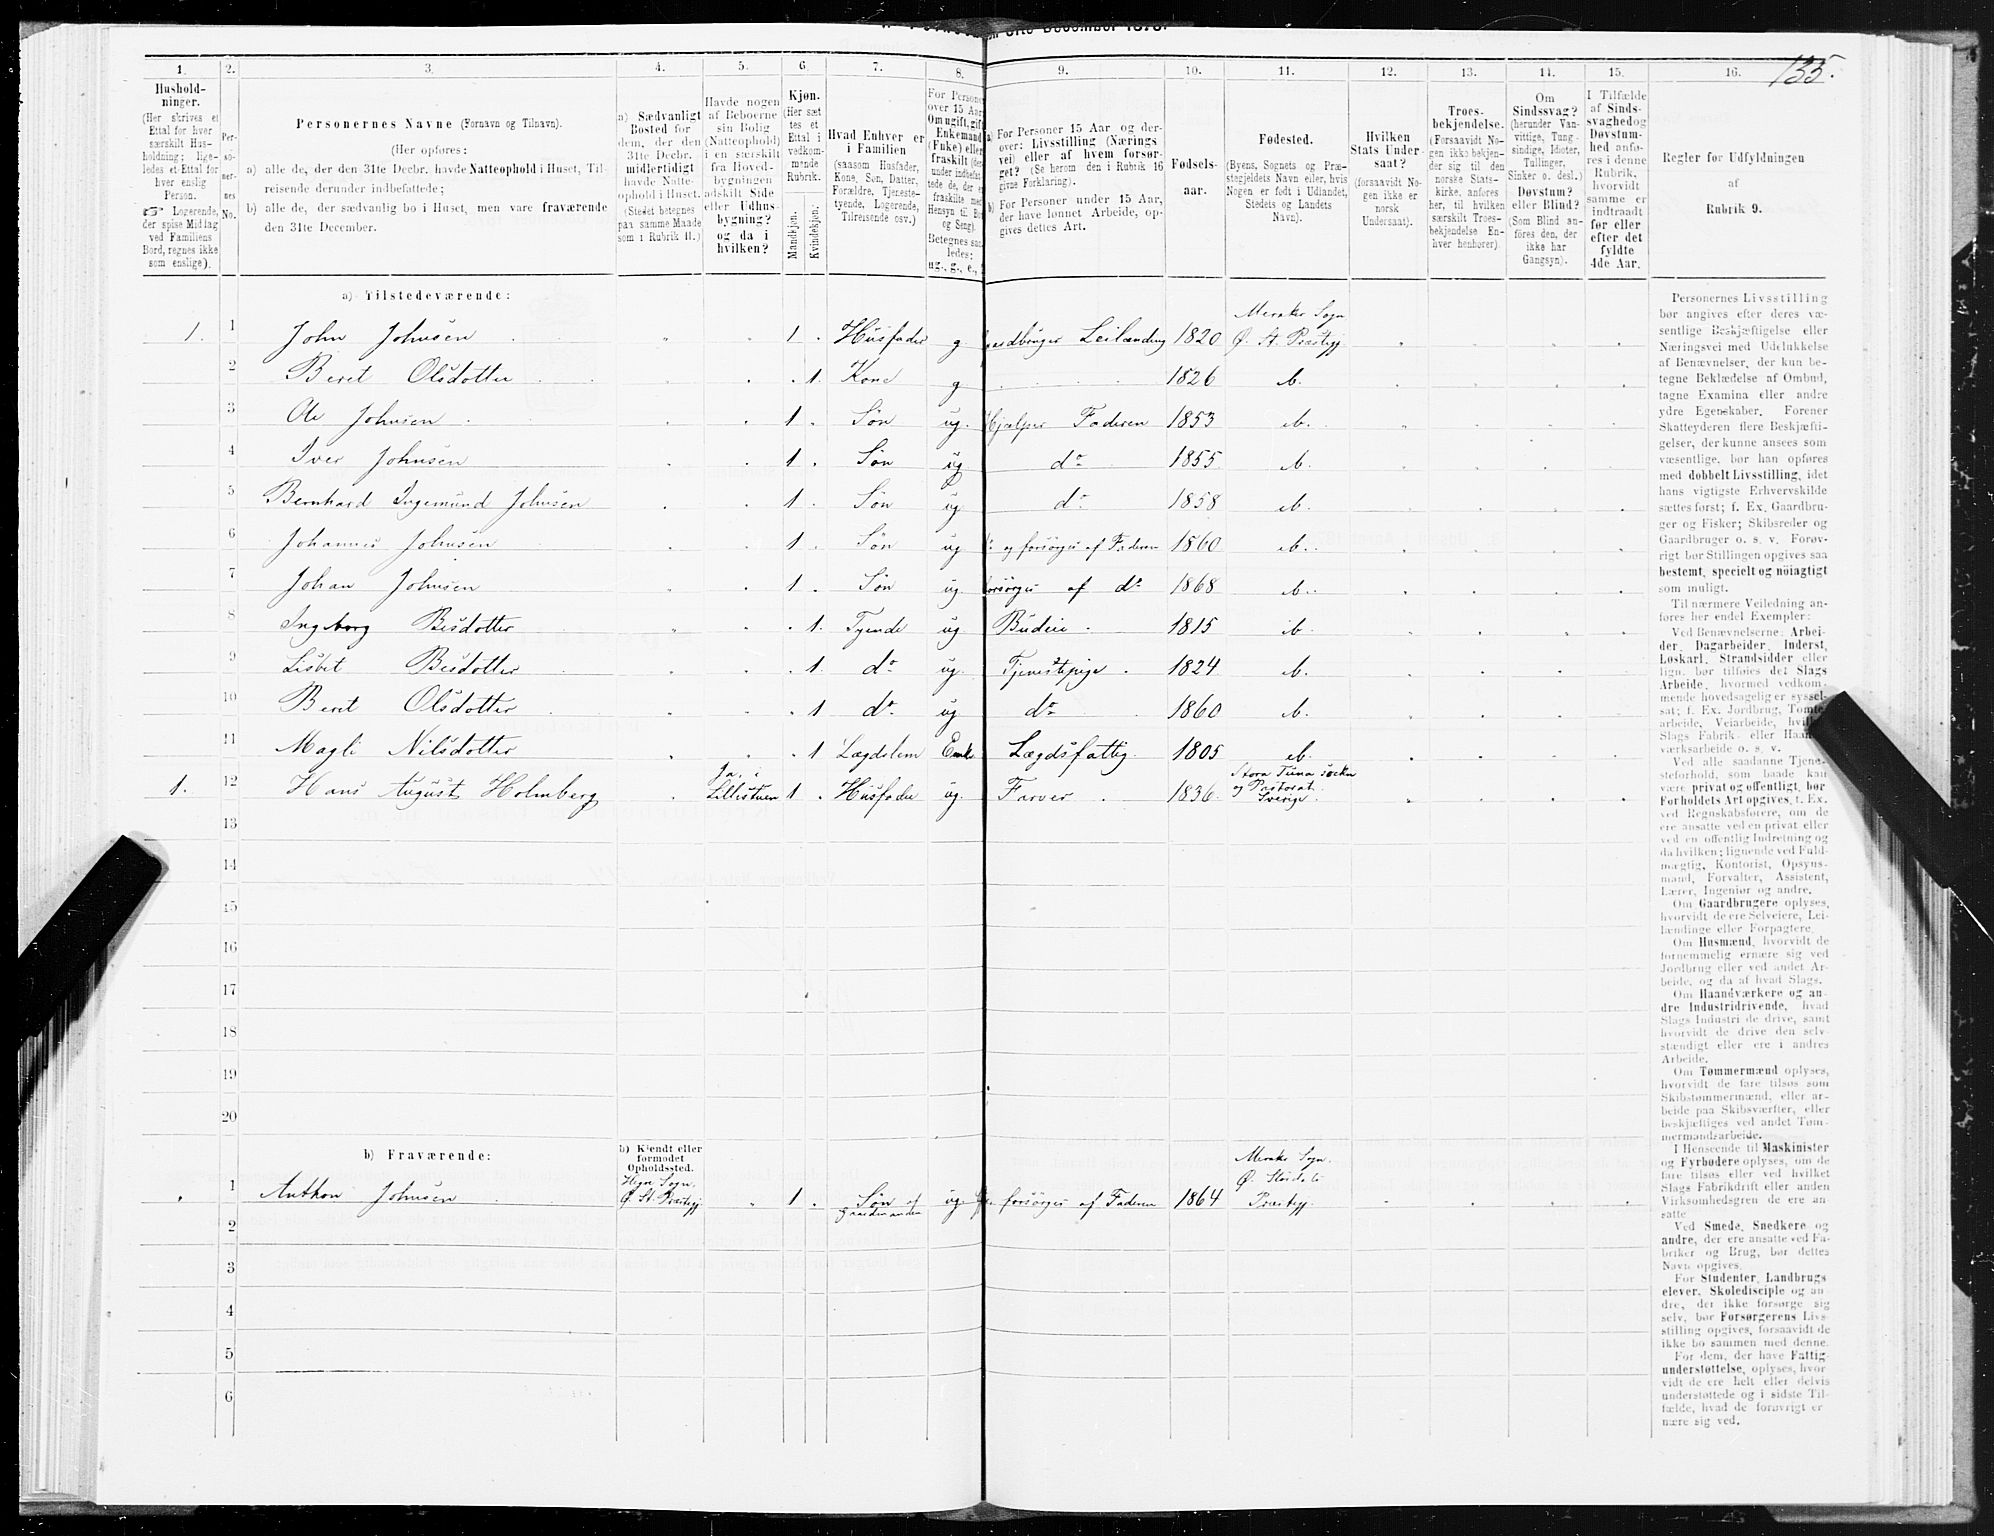 December 1875.
135.
1. 2. 3. 4. 5. 6. 7. 8. 9. 10. 11. 12. 13. 14. 15. 16.
Hushold-
ninger.
(Her skrives et
Ettal for hver
særskilt Hus-
holdning; lige-
ledes et Ettal for
hver enslig
Person.
☞ Logerende,
der spise Middag
ved Familiens
Bord, regnes ikke
som enslige).
Per-
so-
ner-
nes
No.
Personernes Navne (Fornavn og Tilnavn).
(Her opføres:
a) alle de, der den 31te Decbr. havde Natteophold i Huset, Til-
reisende derunder indbefattede;
b) alle de, der sædvanlig bo i Huset, men vare fraværende
den 31te December.
a) Sædvanligt
Bosted for
dem, der den
31te Decbr.
midlertidigt
havde Natte-
ophold i Huset.
(Stedet betegnes
paa samme Maade
som i Rubrik 11.)
Havde nogen
af Beboerne
sin Bolig
(Natteophold)
i en særskilt
fra Hoved-
bygningen
adskilt Side-
eller Udhus-
bygning?
og da i
hvilken?
Kjøn.
(Her sæt-
tes et
Ettal i
vedkom-
mende
Rubrik.
Mandkjøn.
Kvindekjøn.
Hvad Enhver er
i Familien
(saasom Husfader,
Kone, Søn, Datter,
Forældre, Tjeneste-
tyende, Logerende,
Tilreisende osv.)
For Personer
over 15 Aar:
Om ugift, gift,
Enkemand
(Enke) eller
fraskilt
Betegnes saa-
ledes:
ug., g., e.,
a) For Personer 15 Aar og der-
over: Livsstilling (Nærings-
vei) eller af hvem forsør-
get? (Se herom den i Rubrik 16
givne Forklaring).
b) For Personer under 15 Aar,
der have lønnet Arbeide, op-
gives dettes Art.
Fødsels-
aar.
Fødested.
(Byens, Sognets og Præ-
stegjeldets Navn eller, hvis
Nogen er født i Udlandet,
Stedets og Landets
Navn).
Hvilken
Stats Under-
saat?
(forsaavidt No-
gen ikke er
norsk
Undersaat).
Troes-
bekjendelse.
(Forsaavidt No-
gen ikke bekjen-
der sig til den
norske Stats-
kirke, anføres
her, til hvilken
særskilt Troes-
bekjendelse En-
hver henhører).
Om
Sindssvag?
(herunder Van-
vittige, Tung-
sindige, Idioter,
Tullinger,
Sinker o. desl.)
Døvstum?
eller Blind?
(Som Blind an-
føres den, der
ikke har
Gangsyn).
I Tilfælde
af Sinds-
svaghed og
Døvstum-
hed anfø-
res i denne
Rubrik,
hvorvidt
samme er
indtraadt
før eller
efter det
fyldte
4de Aar.
Regler for Udfyldningen
af
Rubrik 9.
a) Tilstedeværende:
1. 1 John Johnsen 1 Husfader g. Gaardbruger Leilænding 1820 Meraker Sogn Ø. St. Præstegj.
2 Beret Olsdotter 1. Kone g 1826 ib.
3 Ole Johnsen 1 Søn ug. Hjælper Faderen 1853 ib.
4 Iver Johnsen 1 Søn ug do 1855 ib.
5 Bernhard Ingemund Johnsen 1 Søn ug do 1858 ib.
6 Johannes Johnsen 1 Søn ug do og forsørges af Faderen 1860 ib.
7 Johan Johnsen 1 Søn ug forsørges af do 1868 ib.
8 Ingeborg Besdotter 1. Tyende ug Budeie 1815 ib.
9 Lisbet Besdotter 1. do ug. Tjenestepige 1824 ib.
10 Beret Olsdotter 1 do ug do 1860 ib.
11 Magli Nilsdotter 1 Lægdslem Enke Lægdsfattig 1805 ib.
1. 12 Hans August Holmberg Ja, i Lillestuen 1 Husfader ug. Farver 1836 Stora Tuna socken og Pastorat. Sverige.
13
14
15
16
17
18
19
20
b) Fraværende:
b) Kjendt eller
formodet
Opholdssted.
1 Anthon Johnsen Hegre Sogn. Ø. St. Præstegj. 1 Søn af Gaardmanden ug forsørges af Faderen 1864 Meraker Sogn. Ø. Størdals Præstegj.
2
3
4
5
6
Personernes Livsstilling
bør angives efter deres væ-
sentlige Beskjæftigelse eller
Næringsvei med Udelukkelse
af Benævnelser, der kun be-
tegne Beklædelse af Ombud,
tagne Examina eller andre
ydre Egenskaber. Forener
Skatteyderen flere Beskjæfti-
gelser, der kunne ansees som
væsentlige, bør han opføres
med dobbelt Livsstilling, idet
hans vigtigste Erhvervskilde
sættes først; f. Ex. Gaardbru-
ger og Fisker; Skibsreder og
Gaardbruger o. s. v. Forøv-
rigt bør Stillingen opgives saa
bestemt, specielt og nöiagtigt
som muligt.
Til nærmere Veiledning an-
føres her endel Exempler:
Ved Benævnelserne: Arbei-
der, Dagarbeider, Inderst,
Løskarl, Strandsidder eller
lign. bør tilføies det Slags
Arbeide, hvormed vedkom-
mende hovedsagelig er syssel-
sat; f. Ex. Jordbrug, Tomte-
arbeide, Veiarbeide, hvilket
Slags Fabrik- eller Haand-
værksarbeide o. s. v.
Ved alle saadanne Tjene-
steforhold, som baade kan
være privat og offentligt, bør
Forholdets Art opgives, f. Ex.
ved Regnskabsførere, om de
ere ansatte ved en privat eller
ved en offentlig Indretning og
da hvilken; lignende ved Fuld-
mægtig, Kontorist, Opsyns-
mand, Forvalter, Assistent,
Lærer, Ingeniør og andre.
Om Gaardbrugere oplyses,
hvorvidt de ere Selveiere, Lei-
lændinge eller Forpagtere.
Om Husmænd, hvorvidt de
fornemmelig ernære sig ved
Jordbrug eller ved andet Ar-
beide, og da af hvad Slags.
Om Haandværkere og an-
dre Industridrivende, hvad
Slags Industri de drive, samt
hvorvidt de drive den selv-
stændigt eller ere i andres
Arbeide.
Om Tømmermænd oplyses,
hvorvidt de fare tilsøs som
Skibstømmermænd, eller ar-
beide paa Skibsværfter, eller
beskjæftiges ved andet Tøm-
mermandsarbeide.
I Henseende til Maskinister
og Fyrbødere oplyses, om de
fare tilsøs eller ved hvilket
Slags Fabrikdrift eller anden
Virksomhedsgren de ere an-
satte
Ved Smede, Snedkere og
andre, der ere ansatte ved Fa-
briker og Brug, bør dettes
Navn opgives.
For Studenter, Landbrugs-
elever, Skoledisciple og an-
dre, der ikke forsørge sig
selv, bør Forsørgerens Livs-
stilling opgives, forsaavidt de
ikke bo sammen med denne.
For dem, der have Fattig-
understøttelse, oplyses, hvor-
vidt de ere helt eller delvis
understøttede og i sidste Til-
fælde, hvad de forøvrigt er-
nære sig ved.